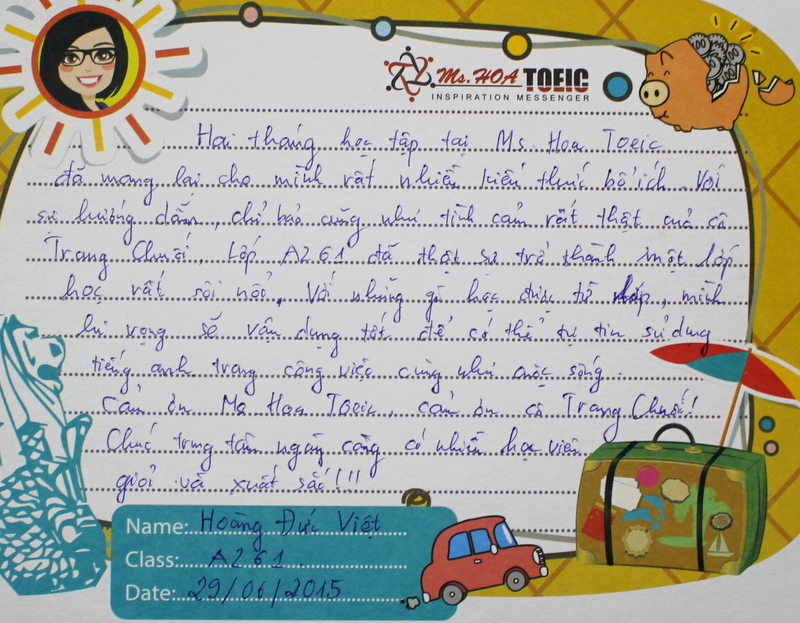 Ms. HOA TOEIC
INSPIRATION MESSENGER
Hai tháng học tập tại Ms Hoa Toeic
đã mang lại cho mình rất nhiều kiến thức bổ ích. Với
sự hướng dẫn, chỉ bảo cũng như tình cảm rất thật của cô
Trang Chuối, Lớp A261 đã thật sự trở thành một lớp
học rất sôi nổi, Với những gì học được từ lớp, mình
hi vọng sẽ vận dụng tốt để có thể tự tin sử dụng
tiếng anh trong công việc cũng như cuộc sống.
Cảm ơn Ms Hoa Toeic, cảm ơn cô Trang Chuối!
Chúc trung tâm ngày càng có nhiều học viên
giỏi và xuất sắc!!!
Name: Hoàng Đức Việt
Class: A261
Date: 29/06/2015